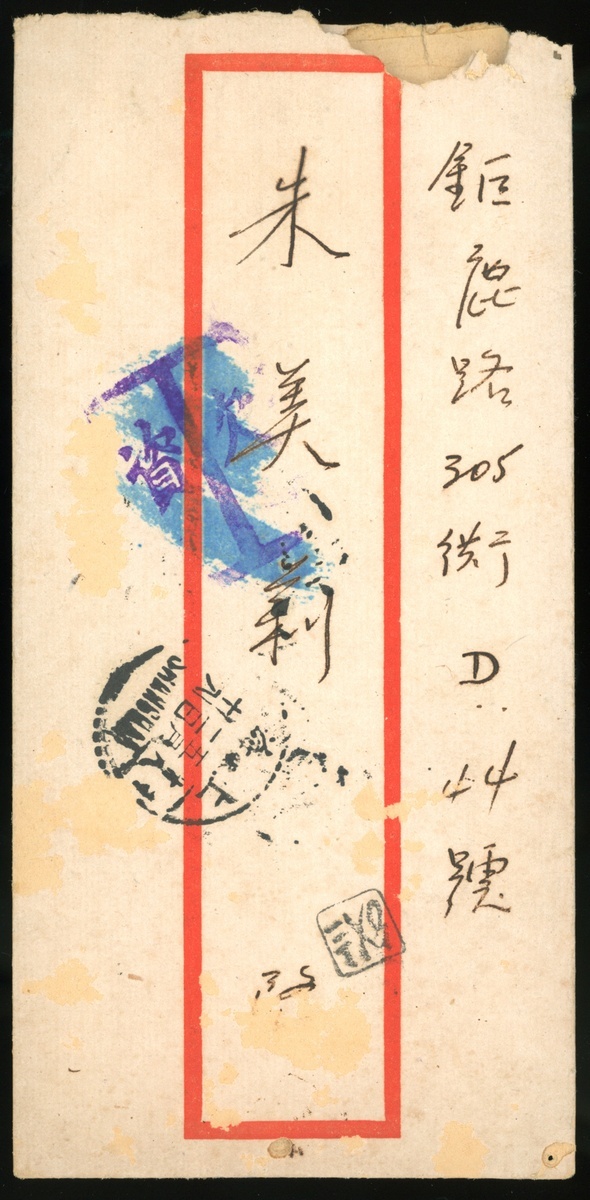 鉅鹿路305衖D.44號
朱美莉 啟
SHANGHAI
上海